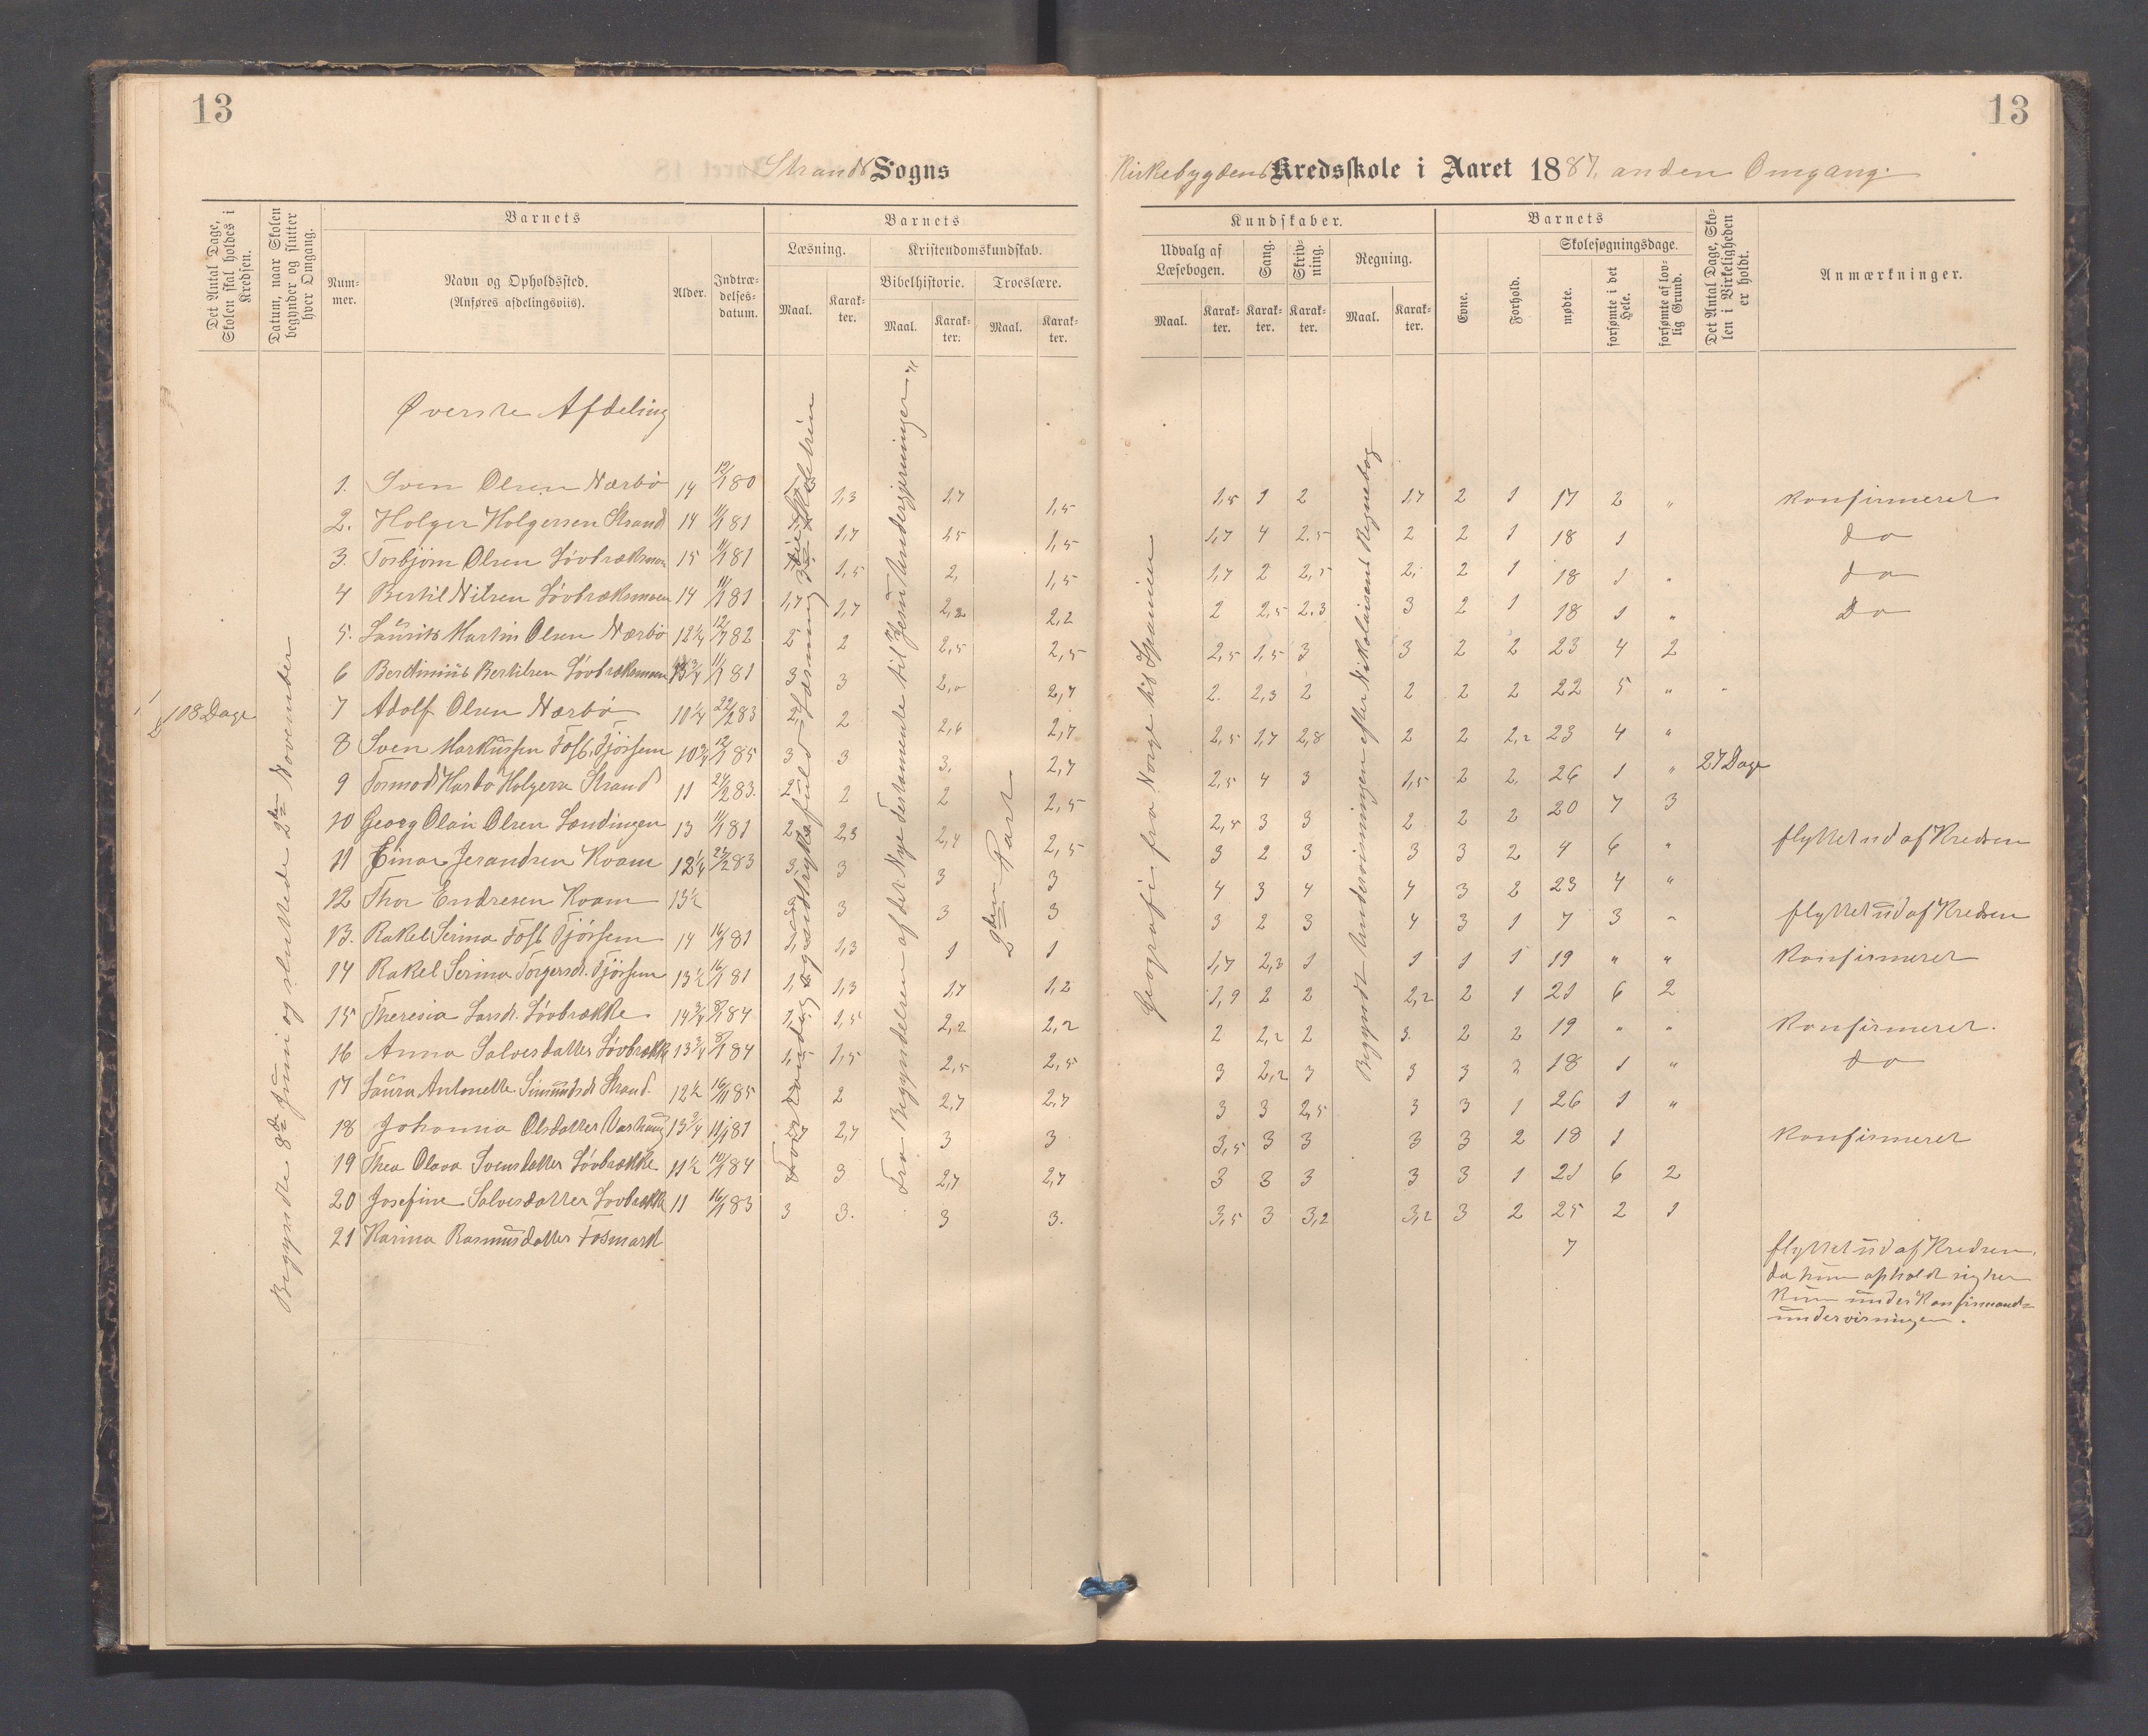 13
13
Strands Sogns
Kirkebygdens Kredsskole i Aaret 1887. anden Omgang.
Det Antal Dage, Skolen skal holdes i Kredsen.
Datum, naar Skolen begynder og slutter hver Omgang.
Barnets
Nummer.
Navn og Opholdssted.
(Anføres afdelingsviis).
Alder.
Indtrædelsesdatum.
Barnets
Læsning.
Maal.
Karakter.
Kristendomskundskab.
Bibelhistorie.
Maal.
Karakter.
Troeslære.
Maal.
Karakter.
Kundskaber.
Udvalg af Læsebogen.
Maal.
Karakter.
Sang.
Karakter.
Skrivning.
Karakter.
Regning.
Maal.
Karakter.
Barnets
Evne.
Forhold.
Skolesøgningsdage.
mødte.
forsømte i det Hele.
forsømte af lovlig Grund.
Det Antal Dage, Skolen i Virkeligheden er holdt.
Anmærkninger.
108 Dage
Begyndte 8de Juni og sluttede 2den November
Fra Begyndelsen af det Nye Testamente til "Jesu Undergjerninger"
2den Part
Geografi fra Norge til Spanien
Begyndt Undervisningen efter Nikolaisens Regnebog
27 Dage
Øverste Afdeling
1. Sven Olsen Nærbø 14 12/1 80 1,3 1,7 1,5 1,5 1 2 1,7 2 1 17 2 " Konfirmeret
2. Holger Holgersen Strand 14 11/1 81 1,7 1,5 1,5 1,7 4 2.5 2 2 1 18 1 do
3. Torbjørn Olsen Løvbræksmoen 15 11/1 81 1,5 2, 1,5 1,7 2 2,5 2, 2 1 18 1 " do
4 Bertil Nilsen Løvbræksmoen 14 11/1 81 1,7 1,7 2,2 2,2 2 2,5 2.3 3 2 1 18 1 " Do
5. Laurits Martin Olsen Nærbø 12 1/4 12/7 82 2 2 2,5 2,5 2,5 1,5 3 3 2 2 23 4 2
6 Berdinius Bertilsen Løvbræksmoen 13 3/4 11/1 81 3 3 2,7 2. 2,3 2 2 2 2 22 5 "
7 Adolf Olsen Nærbø 10 1/4 22/2 83 2 2,6 2,7 2,5 1,7 2,8 2 2 2,2 23 4 "
8 Sven Markussen Fosb. Fjørsem 10 3/4 12/1 85 3 3 3. 2,7 2,5 4 3 1,5 2 2, 26 1 "
9 Tormod Harbo Holgersn Strand 11 24/2 83. 2 2 2,5 2,5 3 3 2 2 2 20 7 3
10 Georg Olai Olsen Lændingen 13 11/1 81 2 2,3 2,4 2,5 3 2 3 3 3 2 4 6 " flyttet ud af Kredsen
11 Einar Jerandsen Kvam 12 1/4 27/2 83 3, 3 3 3 4 3 4 4 3 2 23 4 "
12 Thor Endresen Kvam 13 1/2 3 3 3 3 2 3 4 3 1 7 3 " flyttet ud af Kredsen
13. Rakel Serina Fosb Fjørsem 14 16/1 81 1,3 1 1 1,7 2,3 1 1 1 1 19 " " Konfirmeret
14 Rakel Serina Torgersd. Fjørsem 13 1/2 16/1 81 1,3 1,7 1,2 1,9 2 2 2,2 2 1 21 6 2
15 Theresia Larsd. Løvbrække 14 3/4 8/1 84 1,5 2,2 2,2 2 2,2 2 3. 2 2 19 " " Konfirmeret.
16 Anna Salvesdatter Løvbrække 13 3/4 8/1 84 1,5 2,5 2,5 3 2,2 3 3 3 3 18 1 " do
17 Laura Antonette Simundsd. Strand 12 1/2 16/11 85 2 2,7 2,7 3 3 2,5 3 3 1 26 1 "
18 Johanna Olsdatter Varhaug 13 3/4 11/1 81 2,7 3 3 3,5 3 3 3 3 2 18 1 Konfirmeret
19 Thea Olava Svensdatter Løvbrække 11 1/2 10/1 84 3 2,7 2,7 3 3 3 3 3 1 21 6 2
20 Josefine Salvesdatter Løvbrække 11 16/1 83 3 3. 3 3. 3,5 3 3,2 3,2 3 2 25 2 1
21 Karina Rasmusdatter Fosmark 7 flyttet ud af Kredsen,
da hun opholdt sig her
kun under Konfirmand-
undervisningen.